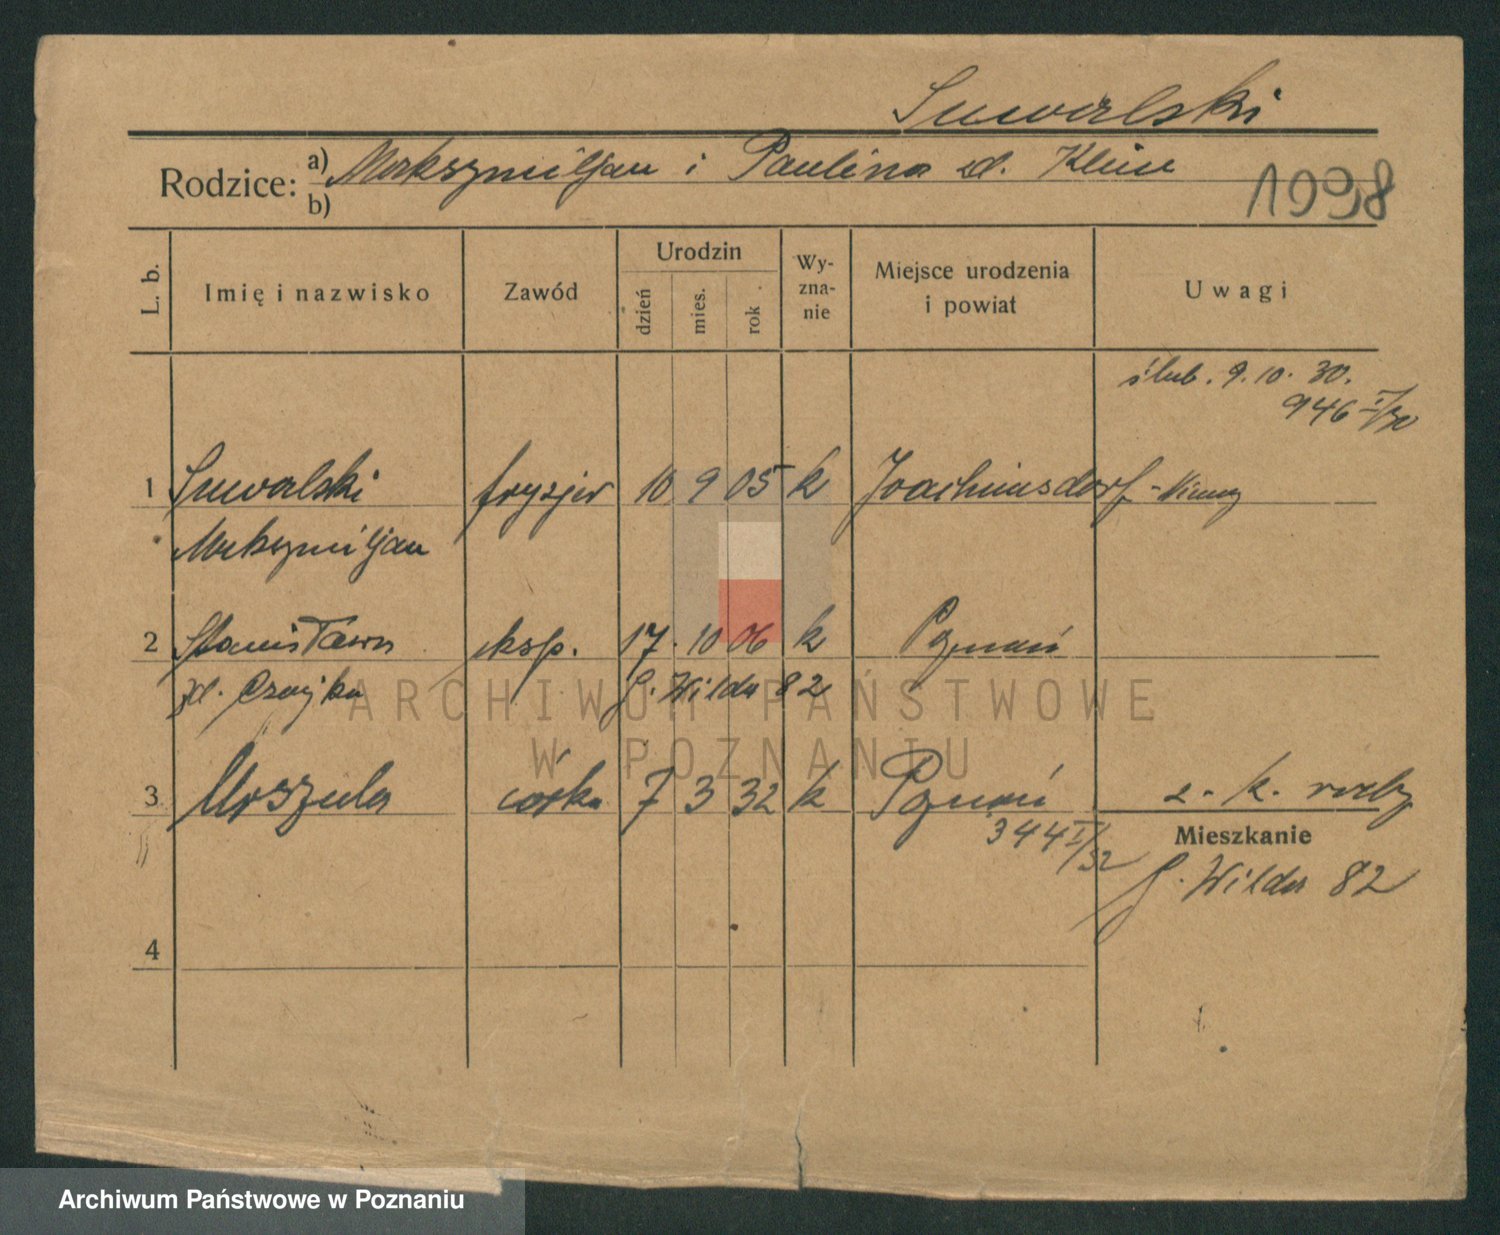 Suwalski
Rodzice: a) Maksymiljan i Paulina zd. Klein
b)
1998
L. b. Imię i nazwisko Zawód Urodzin dzień mies. rok Wyznanie Miejsce urodzenia i powiat Uwagi
ślub. 9.10.30.
946 I/30
1 Suwalski fryzjer 10 9 05 k Joachimsdorf - Niemcy
Maksymiljan
2 Stanisława eksp. 17. 10 06 k Poznań
zd. Czajka G. Wilda 82
3 Urszula córka 7 3 32 k Poznań
344 I/32
z. k. rodz
Mieszkanie
G. Wilda 82
4
ARCHIWUM PAŃSTWOWE
W POZNANIU
Archiwum Państwowe w Poznaniu